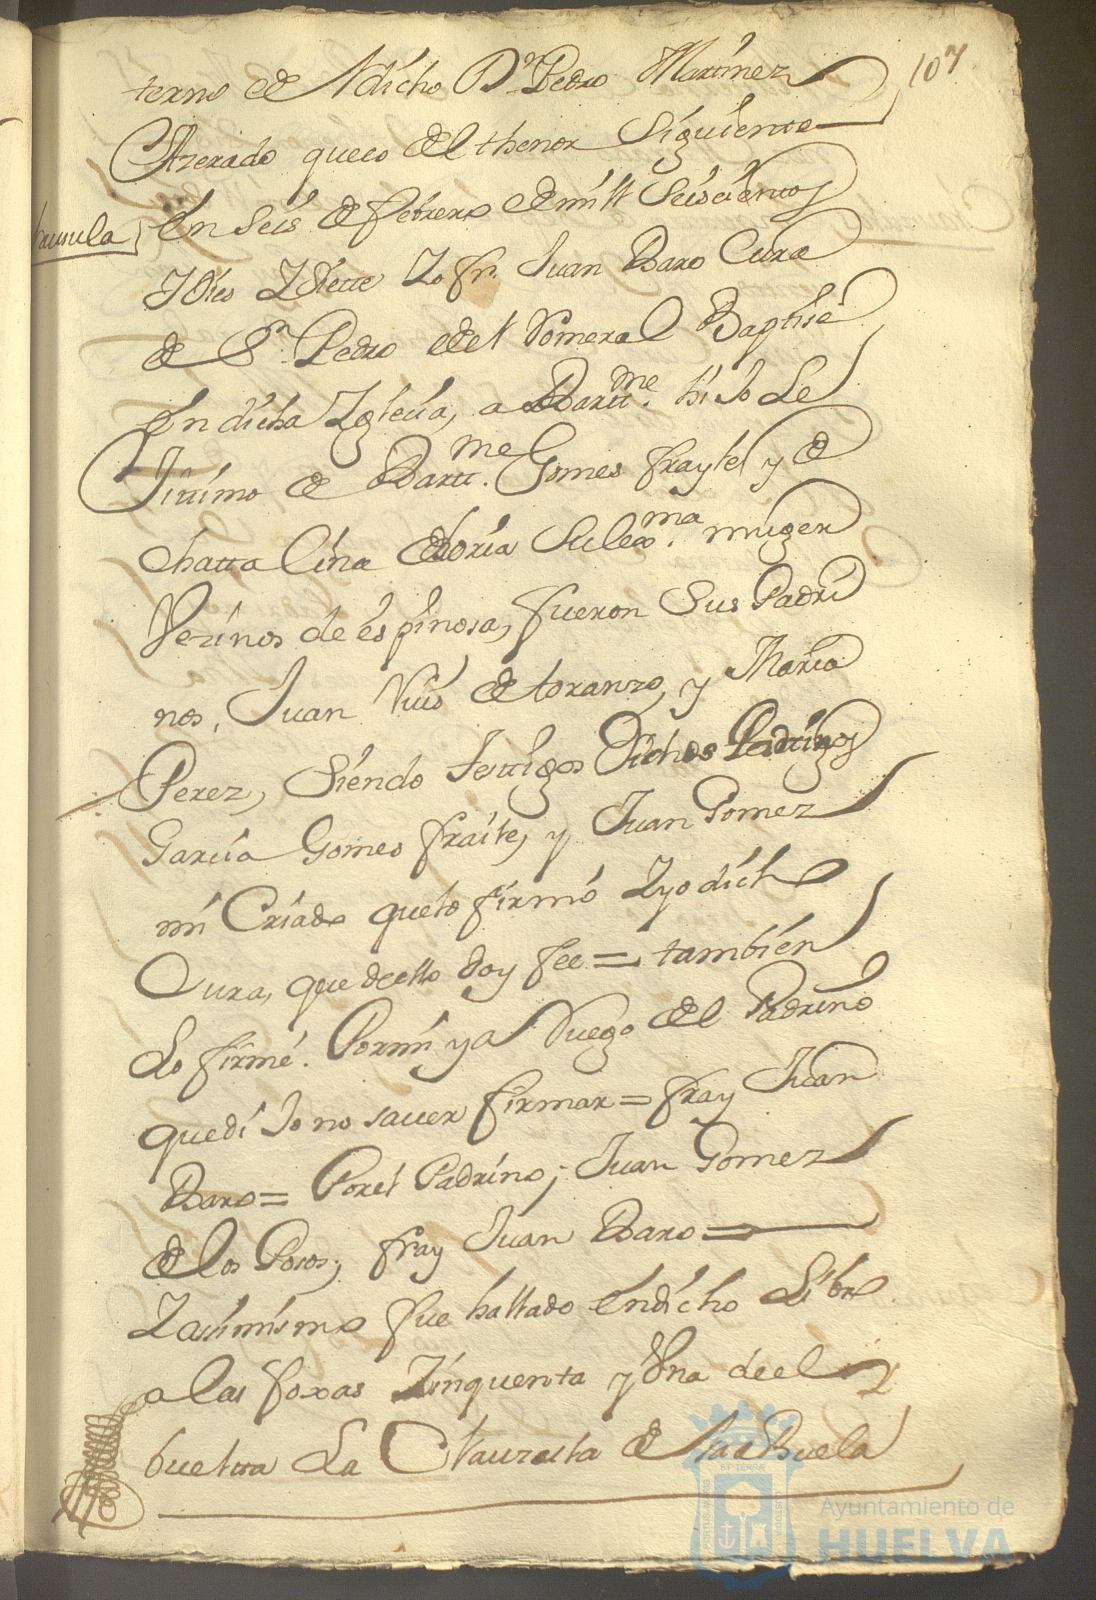 107
terno de el dicho Dn. Pedro Martinez
Azerado que es del thenor Siguiente
En Seis de febrero de mill Seiscientos
Y dies Y Siette Yo fr. Juan Baro Cura
de Sn. Pedro de el Romeral Baptisé
En dicha Yglecia, a Bartt.me hijo Le
Jittimo de Bartt.me Gomes frayle y de
Chatta lina Gomes Su lex.ma muger
Vezinos de espinosa, fueron Sus Padri
nos, Juan Ruis de toranzo, y Maria
Perez, Siendo testigos Dichos Padrinos
Garcia Gomes fraile, y Juan Gomez
mi Criado que lo firmó Y yo dicho
Cura, que de ello doy fee = tambien
Lo firmé. Por mi y a Ruego del Padrino
que di Jo no saver firmar = fray Juan
Baro = Por el Padrino; Juan Gomez
de los Posos; fray Juan Baro =
Y asimismo fue hallado En dicho Libro
a las foxas Zinquenta y Vna de el
buelta La Clausula de la abuela
Ayuntamiento de
HUELVA